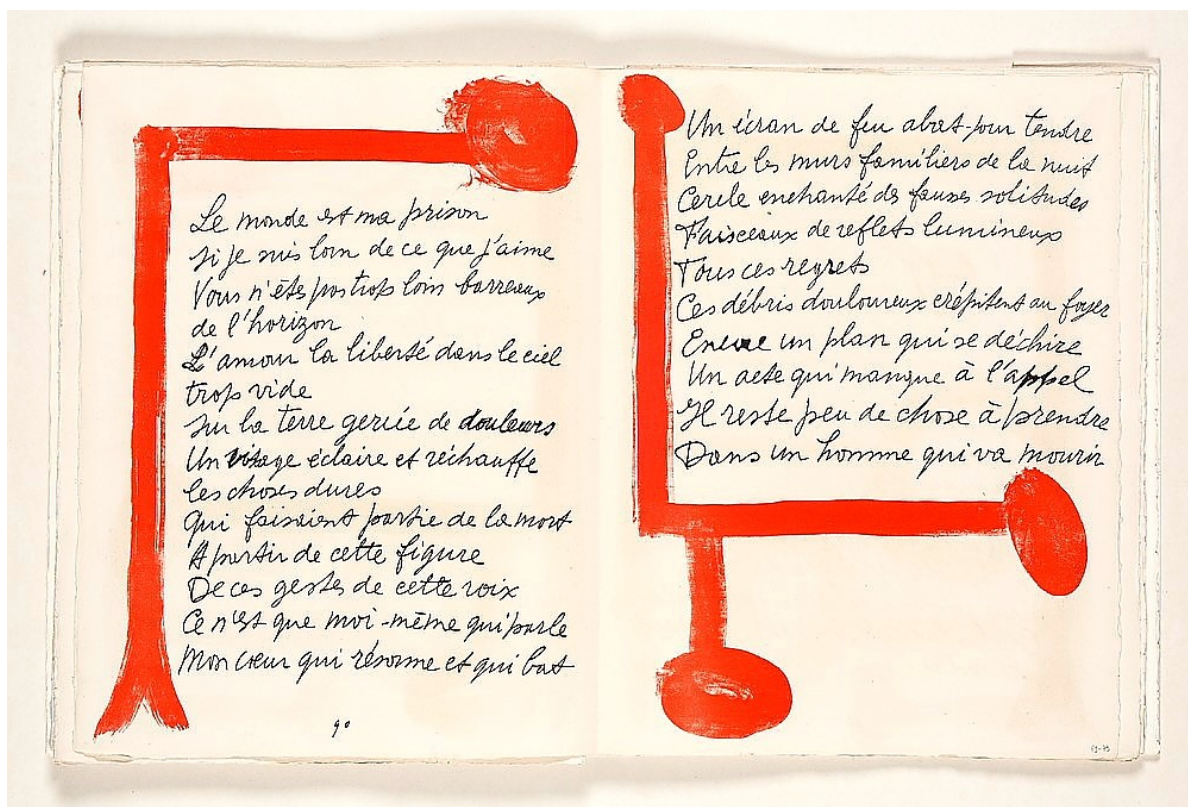 Le monde est ma prison
Si je suis loin de ce que j'aime
Vous n'êtes pas trop loin barreaux
de l'horizon
L'amour la liberté dans le ciel
trop vide
Sur la terre gercée de douleurs
Un visage éclaire et réchauffe
les choses dures
Qui faisaient partie de la mort
A partir de cette figure
De ces gestes de cette voix
Ce n'est que moi-même qui parle
Mon cœur qui résonne et qui bat
90
Un écran de feu abat-jour tendre
Entre les murs familiers de la nuit
Cercle enchanté des fausses solitudes
Faisceaux de reflets lumineux
Tous ces regrets
Ces débris douloureux crépitent au foyer
Encore un plan qui se déchire
Un acte qui manque à l'appel
Il reste peu de chose à prendre
Dans un homme qui va mourir